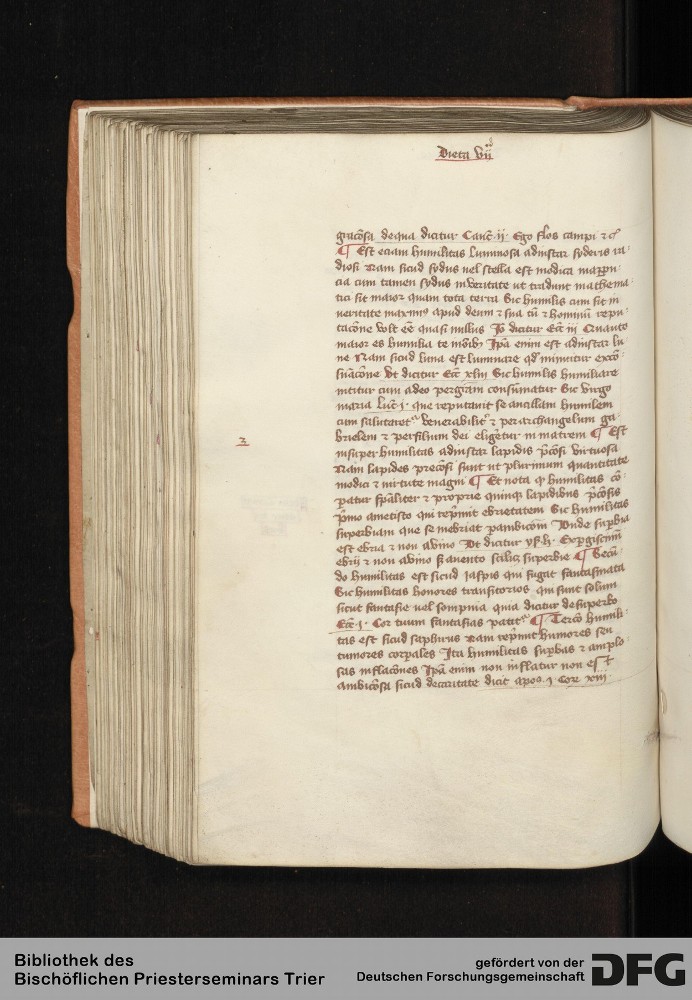 Dieta vij
graciosa de qua dicitur Canc̄ ij Ego flos campi ⁊ c̄
¶ Est eciam humilitas luminosa ad instar syderis ra
diosi Nam sicud sydus uel stella est modica magni
cia cum tamen sydus in veritate ut tradunt mathema
tici sit maior quam tota terra Sic humilis cum sit in
ueritate maximꝰ apud deum ⁊ sua tn̄ ⁊ hominū repu
tacōne volt eē quasi nullus Iō dicitur Ecc̄ iij Quanto
maior es humilia te in oībꝫ Ip̄a enim est ad instar lu
ne Nam sicud luna est luminare qd̛ minuitur
Vt dicitur Ecc̄ xliij Sic humilis humiliare
nititur cum adeo consūmatur Sic virgo
maria Luc̄ j que reputauit se ancillam humilem
cum salutaret᷑ venerabilit᷑ ⁊ per archangelum ga
brielem ⁊ per filium dei eligeretur in matrem ¶ Est
insuper humilitas ad instar lapidis p̄cōsi virtuosa
Nam lapides precōsi sunt ut plurimum quantitate
modici ⁊ uirtute magni ¶ Et nota qꝫ humilitas cō
patur sp̄aliter ⁊ proprie quinqꝫ lapidibus p̄cōsis
p̄mo ametisto qui rep̄mit ebrietatem Sic humilitas
superbiam que se inebriat Vnde sup̄bia
est ebria ⁊ non a vino Vt dicitur ysa. Expergiscimī
ebrij ⁊ non a vino sꝫ a uento scilicꝫ superbie ¶ Secū
do humilitas est sicud iaspis qui fugat fantasmata
Sic humilitas honores transitorios qui sunt solum
sicut fantasie uel sompnia quia dicitur de superbo
Ecc̄ Cor tuum fantasias patit᷑ ¶ Tercō humili
tas est sicud saphirus Nam rep̄mit humores seu
tumores corpales Ita humilitas sup̄bas ⁊
inflacōnes Ip̄a enim non inflatur non est
ambicōsa sicud de caritate dicit apos. j Cor xiij
2
Bibliothek des
Bischöflichen Priesterseminars Trier
gefördert von der
Deutschen Forschungsgemeinschaft
DFG